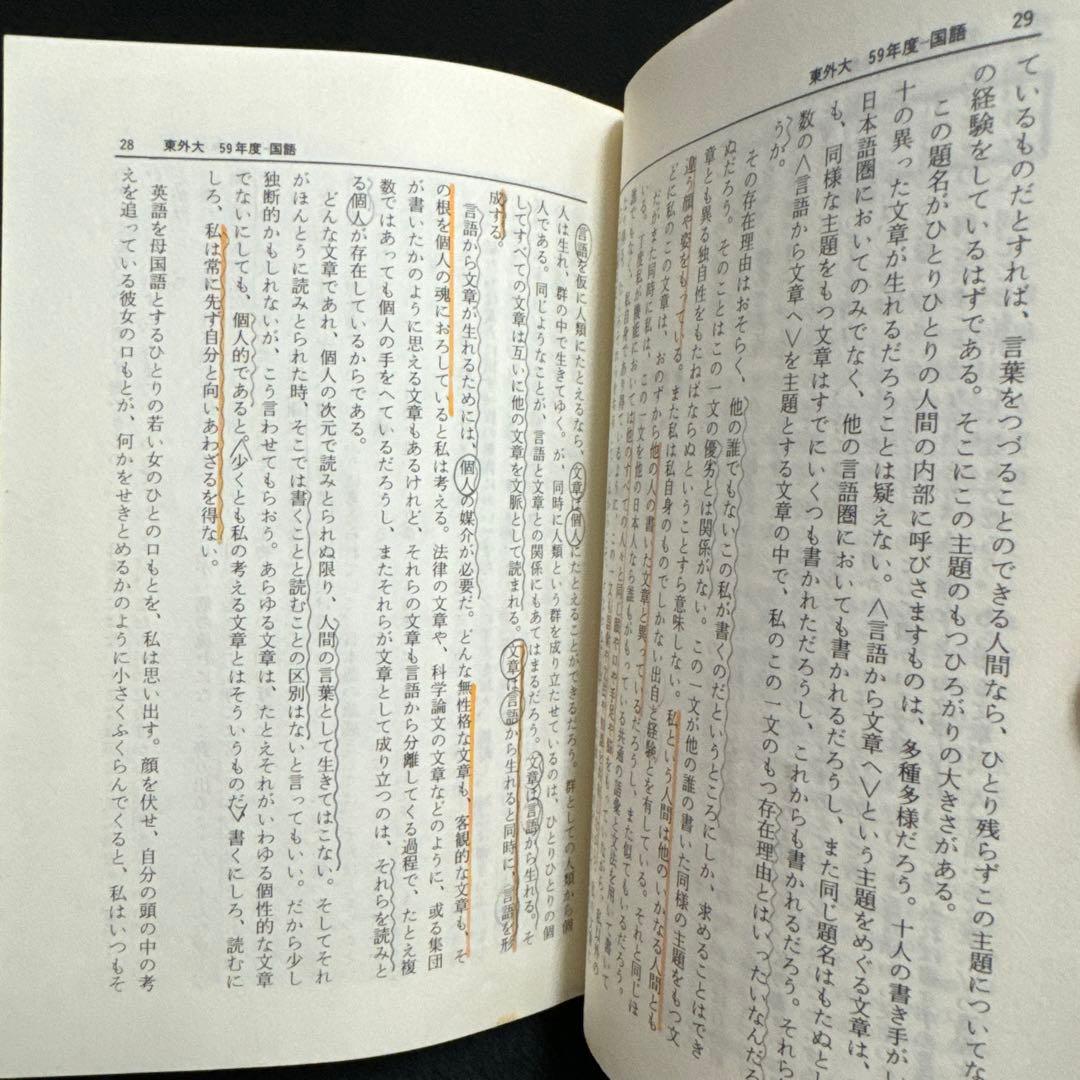 29
東外大 59年度-国語
ているものだとすれば、言葉をつづることのできる人間なら、ひとり残らずこの主題についてな
の経験をしているはずである。そこにこの主題のもつひろがりの大きさがある。
この題名がひとりひとりの人間の内部に呼びさますものは、多種多様だろう。十人の書き手がし
十の異った文章が生れるだろうことは疑えない。〈言語から文章へ〉という主題をめぐる文章は、
日本語圏においてのみでなく、他の言語圏においても書かれるだろうし、また同じ題名はもたぬと
も、同様な主題をもつ文章はすでにいくつも書かれただろうし、これからも書かれるだろう。それら
数の〈言語から文章へ〉を主題とする文章の中で、私のこの一文のもつ存在理由とはいったいなんだろ
うか。
その存在理由はおそらく、他の誰でもないこの私が書くのだというところにしか、求めることはでき
ぬだろう。そのことはこの一文の優劣とは関係がない。この一文が他の誰の書いた同様の主題をもつ文
章とも異る独自性をもたねばならぬということすら意味しない。私という人間は他のいかなる人間とも
違う顔や姿をもっている。また私は私自身のものでしかない出自と経験とを有している。それと同じほ
どに私のこの文章は、おのずから他の人の書いた文章と異っているだろうし、また似てもいるだろう。
だがまた同時に私は、この一文を機能においては他の日本人なら誰もがもっている共通の語彙と文法を用いて書いて
28
東外大 59年度-国語
言語を仮に人類にたとえるなら、文章は個人にたとえることができるだろう。群としての人類から個
人は生れ、群の中で生きてゆく。が、同時に人類という群を成り立たせているのは、ひとりひとりの個
人である。同じようなことが、言語と文章との関係にもあてはまるだろう。文章は言語から生れる。そ
してすべての文章は互いに他の文章を文脈として読まれる。文章は言語から生れると同時に、言語を形
成する。
言語から文章が生れるためには、個人の媒介が必要だ。どんな無性格な文章も、客観的な文章も、そ
の根を個人の魂におろしていると私は考える。法律の文章や、科学論文の文章などのように、或る集団
が書いたかのように思える文章もあるけれど、それらの文章も言語から分離してくる過程で、たとえ複
数ではあっても個人の手をへているだろうし、またそれらが文章として成り立つのは、それらを読みと
る個人が存在しているからである。
どんな文章であれ、個人の次元で読みとられぬ限り、人間の言葉として生きてはこない。そしてそれ
がほんとうに読みとられた時、そこでは書くことと読むことの区別はないと言ってもいい。だから少し
独断的かもしれないが、こう言わせてもらおう。あらゆる文章は、たとえそれがいわゆる個性的な文章
でないにしても、個人的であると。少くとも私の考える文章とはそういうものだ。書くにしろ、読むに
しろ、私は常に先ず自分と向いあわざるを得ない。
英語を母国語とするひとりの若い女のひとの口もとを、私は思い出す。顔を伏せ、自分の頭の中の考
えを追っている彼女の口もとが、何かをせきとめるかのように小さくふくらんでくると、私はいつもそ